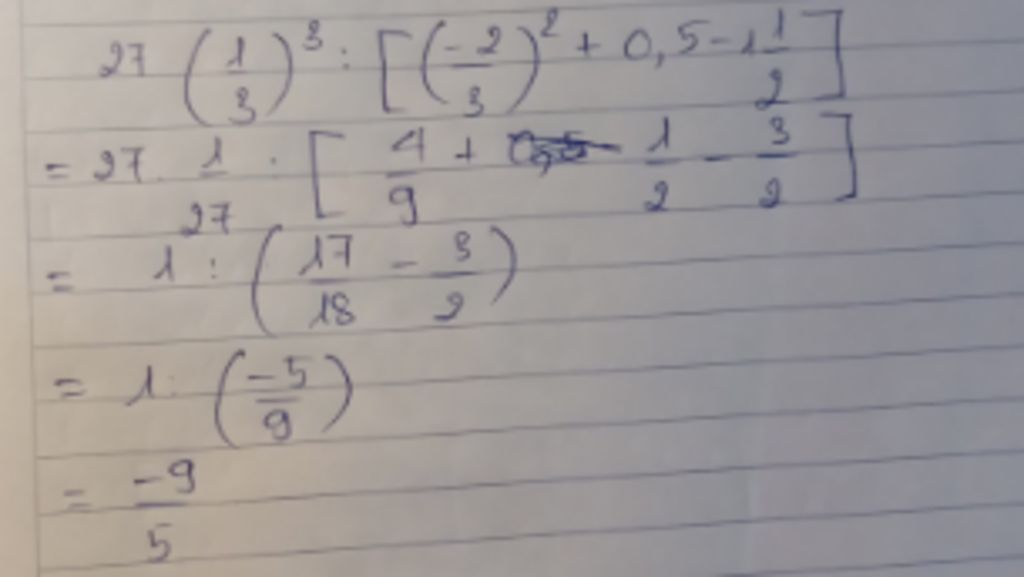 27 (1/3)^3 : [(-2/3)^2 + 0,5 - 1 1/2]
= 27 . 1/27 : [4/9 + 1/2 - 3/2]
= 1 : (17/18 - 3/2)
= 1 : (-5/9)
= -9/5